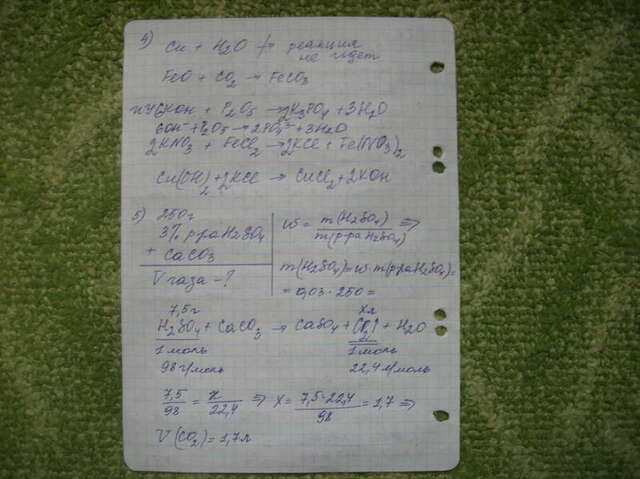 4) Cu + H2O ↛ реакция
не идет
FeO + CO2 → FeCO3
6KOH + P2O5 → 2K3PO4 + 3H2O
6OH⁻ + P2O5 → 2PO4³⁻ + 3H2O
2KNO3 + FeCl2 → 2KCl + Fe(NO3)2
Cu(OH)2 + 2KCl → CuCl2 + 2KOH
5) 250г
3% р-ра H2SO4
+ CaCO3
V газа - ?
w = m(H2SO4) / m(р-ра H2SO4) ⇒
m(H2SO4) = w · m(р-ра H2SO4) =
= 0,03 · 250 =
7,5г xл
H2SO4 + CaCO3 → CaSO4 + CO2↑ + H2O
1 моль 1 моль
98 г/моль 22,4 л/моль
7,5/98 = x/22,4 ⇒ x = 7,5·22,4/98 = 1,7 ⇒
V(CO2) = 1,7л